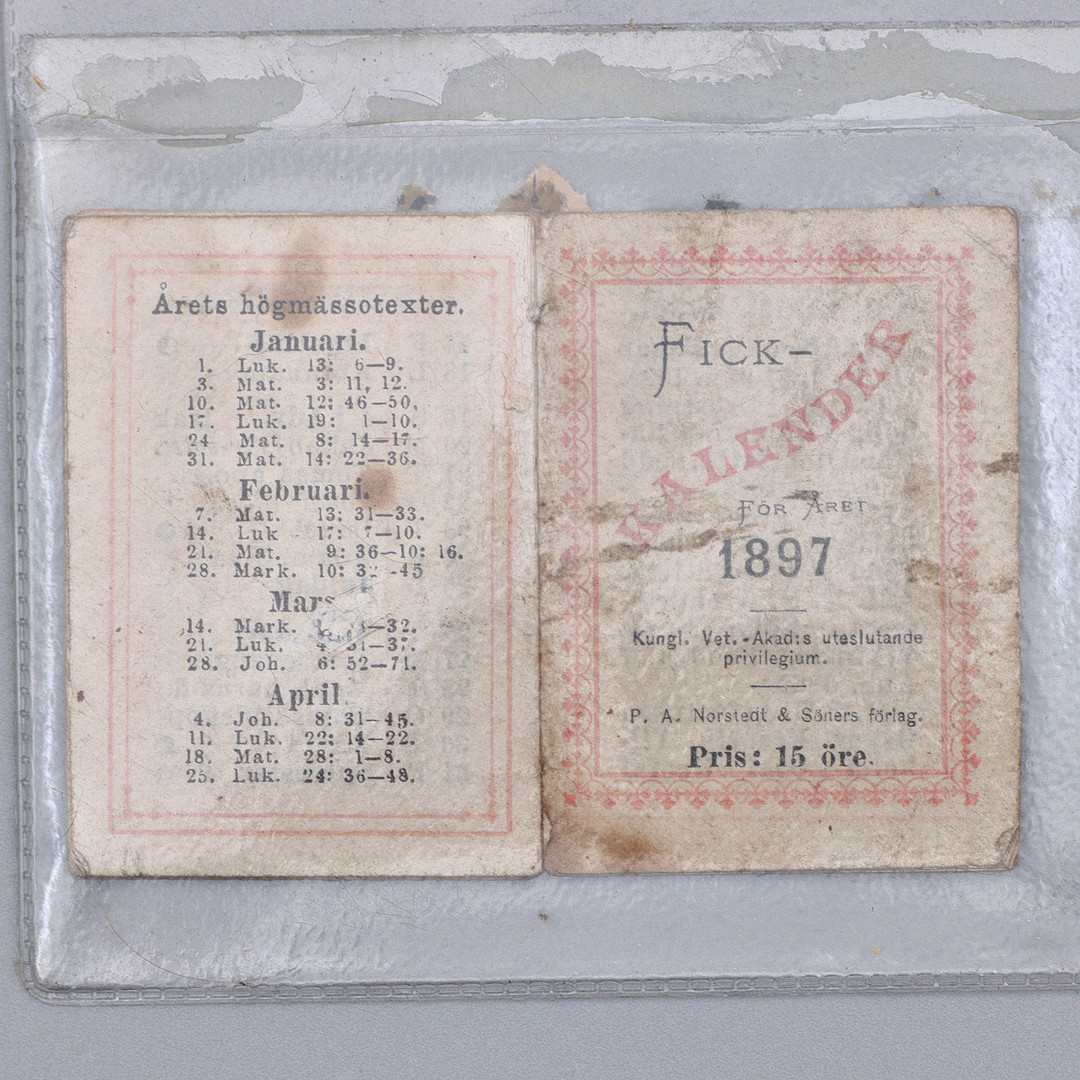 Årets högmässotexter.
Januari.
1. Luk. 13: 6—9.
3. Mat. 3: 11, 12.
10. Mat. 12: 46—50,
17. Luk. 19: 1—10.
24 Mat. 8: 14—17.
31. Mat. 14: 22—36.
Februari.
7. Mat. 13: 31—33.
14. Luk 17: 7—10.
21. Mat. 9: 36—10: 16.
28. Mark. 10: -45
Mars
14. Mark. —32.
21. Luk. 31—37.
28. Joh. 6: 52—71.
April.
4. Joh. 8: 31—45.
11. Luk. 22: 14—22.
18. Mat. 28: 1—8.
25. Luk. 24: 36—48.
FICK-
KALENDER
FÖR ÅRET
1897
Kungl. Vet.-Akad:s uteslutande
privilegium.
P. A. Norstedt & Söners förlag.
Pris: 15 öre.